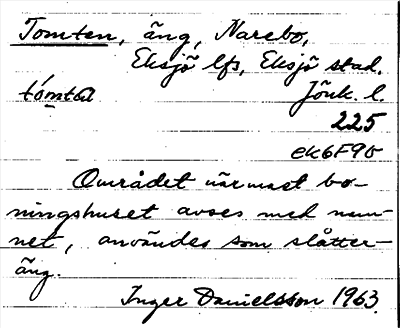 Tomten, äng, Narebo,
Eksjö lfs, Eksjö stad.
tómta Jönk. l.
225
ek6F90
Området närmast bo-
ningshuset avses med nam-
net, användes som slåtter-
äng.
Inger Danielsson 1963.